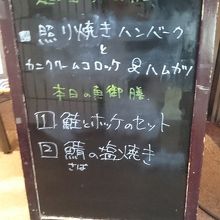 ■照り焼きハンバーグ
と
カニクリームコロッケ & ハムカツ
本日の魚御膳
1 鮭とホッケのセット
2 鯖の塩焼き
さば